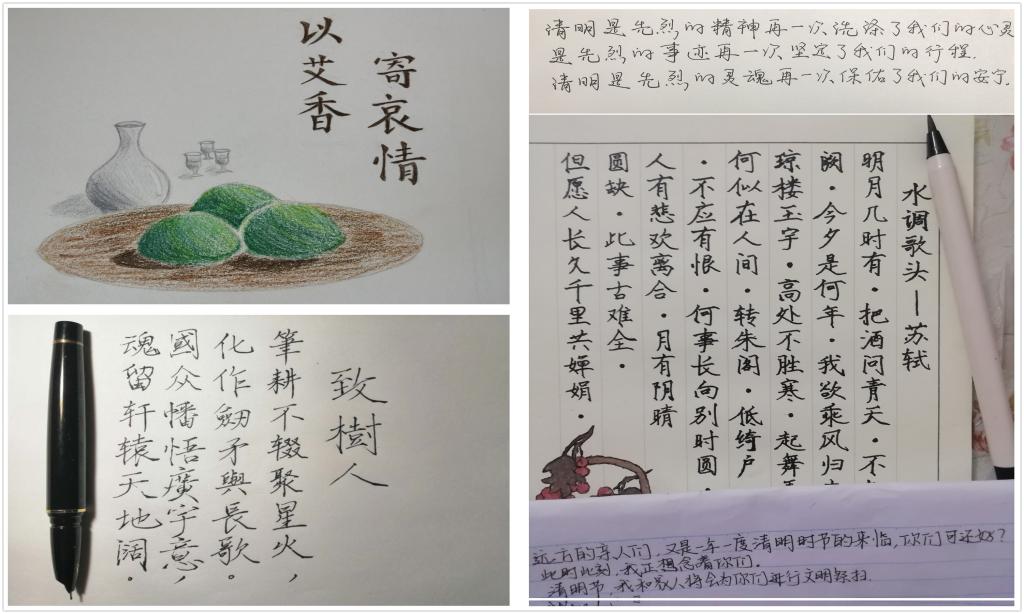 以艾香
寄哀情
致樹人
筆耕不辍聚星火，
化作剱矛與長歌。
國众幡悟廣宇意，
魂留轩辕天地阔。
清明是先烈的精神再一次洗涤了我们的心灵
是先烈的事迹再一次坚定了我们的行程.
清明是先烈的灵魂再一次保佑了我们的安宁.
水调歌头—苏轼
明月几时有·把酒问青天·不
阙·今夕是何年·我欲乘风归
琼楼玉宇·高处不胜寒·起舞
何似在人间·转朱阁·低绮户
·不应有恨·何事长向别时圆·
人有悲欢离合·月有阴晴
圆缺·此事古难全·
但愿人长久千里共婵娟·
远方的亲人们，又是一年一度清明时节的来临，你们可还好？
此时此刻，我正想念着你们。
清明节，我和家人将会为你们进行文明祭扫.